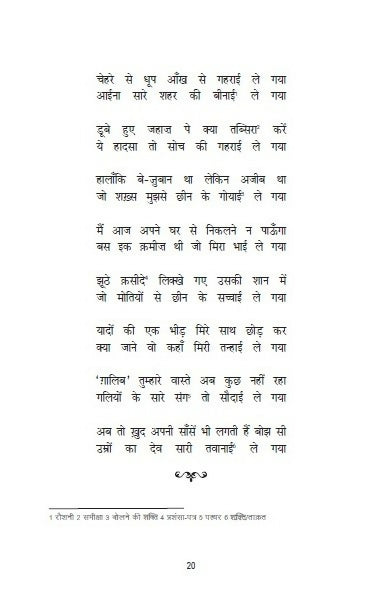 चेहरे से धूप आँख से गहराई ले गया
आईना सारे शहर की बीनाई¹ ले गया
डूबे हुए जहाज़ पे क्या तब्सिरा² करें
ये हादसा तो सोच की गहराई ले गया
हालाँकि बे-ज़ुबान था लेकिन अजीब था
जो शख़्स मुझसे छीन के गोयाई³ ले गया
मैं आज अपने घर से निकलने न पाऊँगा
बस इक क़मीज़ थी जो मिरा भाई ले गया
झूठे क़सीदे⁴ लिक्खे गए उसकी शान में
जो मोतियों से छीन के सच्चाई ले गया
यादों की एक भीड़ मिरे साथ छोड़ कर
क्या जाने वो कहाँ मिरी तन्हाई ले गया
‘ग़ालिब’ तुम्हारे वास्ते अब कुछ नहीं रहा
गलियों के सारे संग⁵ तो सौदाई ले गया
अब तो ख़ुद अपनी साँसें भी लगती हैं बोझ सी
उम्रों का देव सारी तवानाई⁶ ले गया
1 रौशनी 2 समीक्षा 3 बोलने की शक्ति 4 प्रशंसा-पत्र 5 पत्थर 6 शक्ति/ताक़त
20